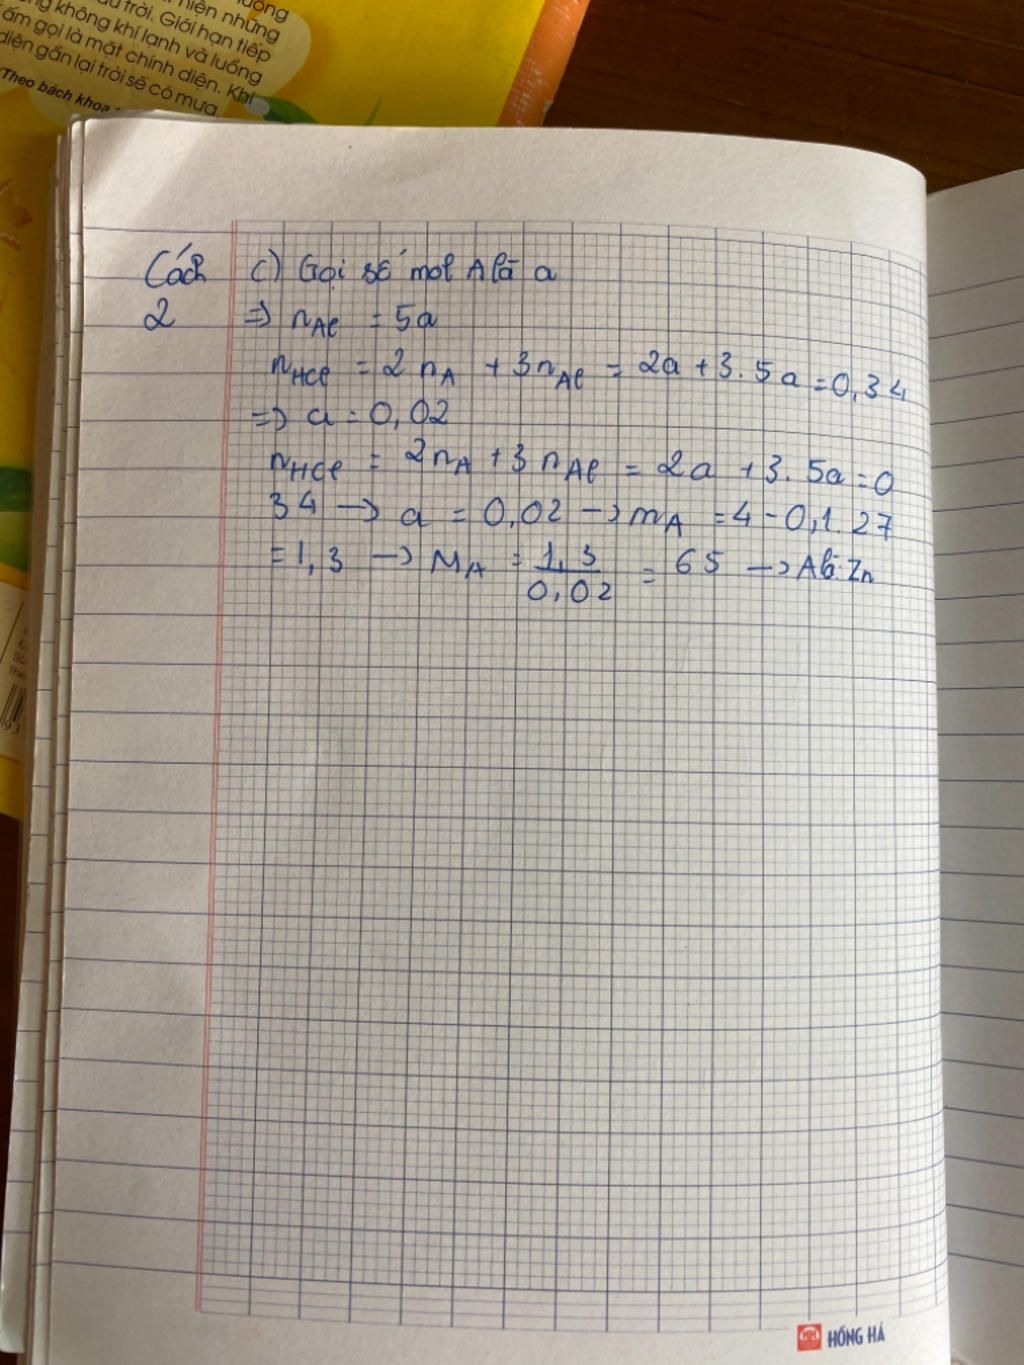 uống
hiện những
trời. Giới hạn tiếp
không khí lạnh và luồng
ấm gọi là mặt chính diện. Khi
diện gần lại trời sẽ có mưa.
Theo bách khoa
Cách c) Gọi số mol A là a
2 => nAl = 5a
nHCl = 2 nA + 3nAl = 2a + 3. 5a = 0,34
=> a = 0,02
nHCl = 2nA + 3 nAl = 2a + 3. 5a = 0
34 -> a = 0,02 -> mA = 4 - 0,1. 27
= 1,3 -> MA = 1,3/0,02 = 65 -> A là Zn
HỒNG HÀ